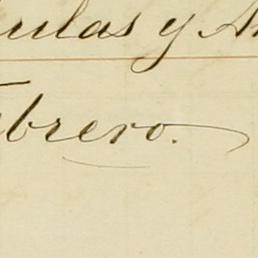 ulas y A
ebrero.